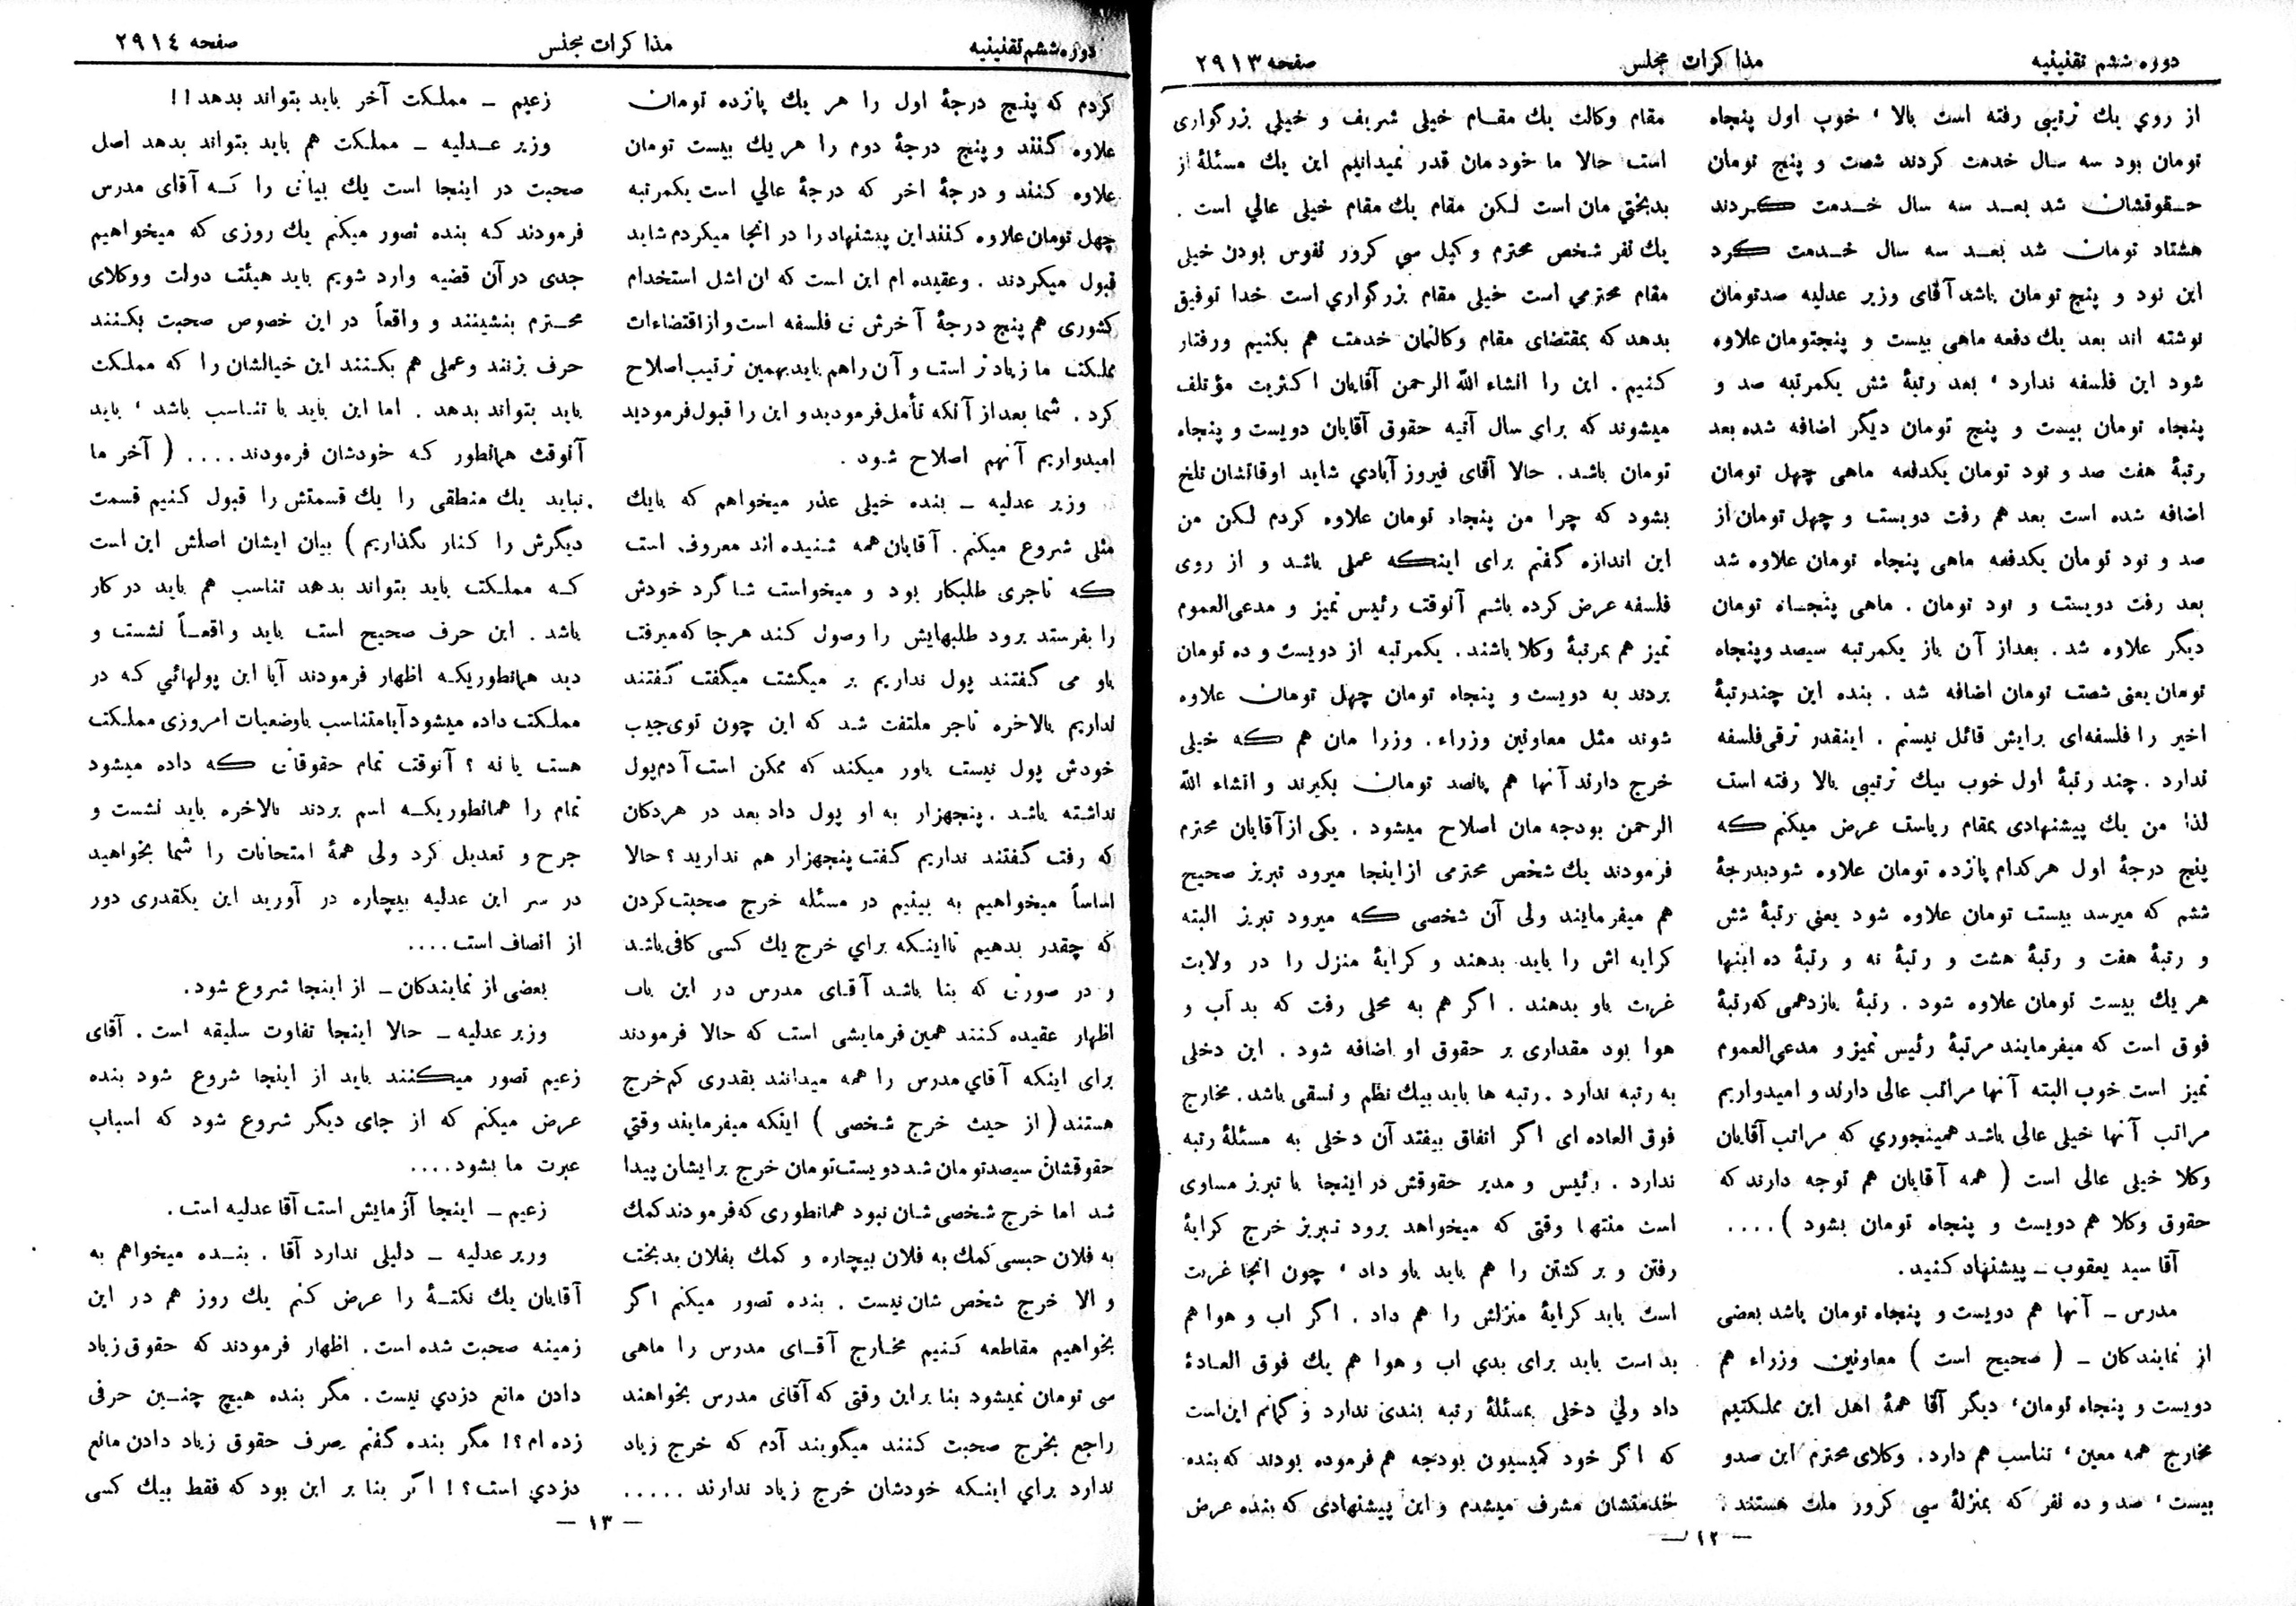 دوره ششم تقنینیه
مذاکرات مجلس
صفحه ۲۹۱۳
از روي يك ترتیبی رفته است بالا ، خوب اول پنجاه
تومان بود سه سال خدمت کردند شصت و پنج تومان
حقوقشان شد بعد سه سال خدمت کردند
هشتاد تومان شد بعد سه سال خدمت کرد
این نود و پنج تومان باشد آقای وزیر عدلیه صدتومان
نوشته اند بعد يك دفعه ماهی بیست و پنجتومان علاوه
شود این فلسفه ندارد ، بعد رتبهٔ شش یکمرتبه صد و
پنجاه تومان بیست و پنج تومان دیگر اضافه شده بعد
رتبهٔ هفت صد و نود تومان یکدفعه ماهی چهل تومان
اضافه شده است بعد هم رفت دویست و چهل تومان از
صد و نود تومان یکدفعه ماهی پنجاه تومان علاوه شد
بعد رفت دویست و نود تومان . ماهی پنجاه تومان
دیگر علاوه شد . بعداز آن باز یکمرتبه سیصد و پنجاه
تومان یعنی شصت تومان اضافه شد . بنده این چندرتبهٔ
اخیر را فلسفه‌ای برایش قائل نیستم . اینقدر ترقی فلسفه
ندارد . چند رتبهٔ اول خوب بيك ترتیبی بالا رفته است
لذا من يك پیشنهادی بمقام ریاست عرض میکنم که
پنج درجهٔ اول هرکدام پازده تومان علاوه شود بدرجهٔ
ششم که میرسد بیست تومان علاوه شود یعنی رتبهٔ شش
و رتبهٔ هفت و رتبهٔ هشت و رتبهٔ نه و رتبهٔ ده اینها
هر يك بیست تومان علاوه شود . رتبهٔ یازدهمی که رتبهٔ
فوق است که میفرمایند مرتبهٔ رئیس تمیز و مدعی‌العموم
تمیز است خوب البته آنها مراتب عالی دارند و امیدواریم
مراتب آنها خیلی عالی باشد همینجوري که مراتب آقایان
وکلا خیلی عالی است ( همه آقایان هم توجه دارند که
حقوق وکلا هم دویست و پنجاه تومان بشود ) ....
آقا سید یعقوب ــ پیشنهاد کنید .
مدرس ــ آنها هم دویست و پنجاه تومان باشد بعضی
از نمایندکان ــ ( صحیح است ) معاونین وزراء هم
دویست و پنجاه تومان ، دیگر آقا همهٔ اهل این مملکتیم
مخارج همه معین ، تناسب هم دارد . وکلای محترم این صدو
بیست ، صد و ده نفر که بمنزلهٔ سی کرور ملت هستند .
مقام وکالت يك مقام خیلی شریف و خیلي بزرگواری
است حالا ما خودمان قدر نمیدانیم این يك مسئلهٔ از
بدبختي مان است لکن مقام يك مقام خیلی عالي است .
يك نفر شخص محترم وکیل سي کرور نفوس بودن خیلی
مقام محترمي است خیلی مقام بزرگواري است خدا توفیق
بدهد که بمقتضای مقام وکالتمان خدمت هم بکنیم ورفتار
کنیم . این را انشاء الله الرحمن آقایان اکثریت مؤتلف
میشوند که برای سال آتیه حقوق آقایان دویست و پنجاه
تومان باشد . حالا آقای فیروز آبادي شاید اوقاتشان تلخ
بشود که چرا من پنجاه تومان علاوه کردم لکن من
این اندازه گفتم برای اینکه عملی باشد و از روی
فلسفه عرض کرده باشم آنوقت رئیس تمیز و مدعی‌العموم
تمیز هم بمرتبهٔ وکلا باشند . یکمرتبه از دویست و ده تومان
بردند به دویست و پنجاه تومان چهل تومان علاوه
شوند مثل معاونین وزراء . وزرا مان هم که خیلی
خرج دارند آنها هم پانصد تومان بکیرند و انشاء الله
الرحمن بودجه مان اصلاح میشود . یکی از آقایان محترم
فرمودند يك شخص محترمی از اینجا میرود تبریز صحیح
هم میفرمایند ولی آن شخصی که میرود تبریز البته
کرایه اش را باید بدهند و کرایهٔ منزل را در ولایت
غربت باو بدهند . اکر هم به محلی رفت که بد آب و
هوا بود مقداری بر حقوق او اضافه شود . این دخلی
به رتبه ندارد . رتبه ها باید بيك نظم و نسقی باشد . مخارج
فوق العاده ای اکر اتفاق بیفتد آن دخلی به مسئلهٔ رتبه
ندارد . رئیس و مدیر حقوقش در اینجا با تبریز مساوی
است منتها وقتی که میخواهد برود تبریز خرج کرایهٔ
رفتن و بر کشتن را هم باید باو داد ، چون انجا غربت
است باید کرایهٔ منزلش را هم داد . اکر اب و هوا هم
بد است باید برای بدي اب و هوا هم يك فوق العادهٔ
داد ولي دخلی بمسئلهٔ رتبه بندی ندارد و کمانم این است
که اکر خود کمیسیون بودجه هم فرموده بودند که بنده
خدمتشان مشرف میشدم و این پیشنهادی که بنده عرض
— ۱۲ —
دوره ششم تقنینیه
مذاکرات مجلس
صفحه ۲۹۱٤
کردم که پنج درجهٔ اول را هر يك پازده تومان
علاوه کنند و پنج درجهٔ دوم را هر يك بیست تومان
علاوه کنند و درجهٔ اخر که درجهٔ عالي است یکمرتبه
چهل تومان علاوه کنند این پیشنهاد را در انجا میکردم شاید
قبول میکردند . وعقیده ام این است که ان اشل استخدام
کشوری هم پنج درجهٔ آخرش بی فلسفه است و از اقتضاءات
مملکت ما زیادتر است و آن راهم باید بهمین ترتیب اصلاح
کرد . شما بعداز آنکه تأمل فرمودید و این را قبول فرمودید
امیدواریم آنهم اصلاح شود .
وزیر عدلیه ــ بنده خیلی عذر میخواهم که بايك
مثلی شروع میکنم . آقایان همه شنیده اند معروف است
که تاجری طلبکار بود و میخواست شاگرد خودش
را بفرستد برود طلبهایش را وصول کند هرجا که میرفت
باو می گفتند پول نداریم بر میگشت میگفت گفتند
نداریم بالاخره تاجر ملتفت شد که این چون توی جیب
خودش پول نیست باور میکند که ممکن است آدم پول
نداشته باشد . پنجهزار به او پول داد بعد در هر دکان
که رفت گفتند نداریم گفت پنجهزار هم ندارید ؟ حالا
اساساً میخواهیم به بینیم در مسئله خرج صحبت کردن
که چقدر بدهیم تااینکه براي خرج يك کسی کافی باشد
و در صورتی که بنا باشد آقای مدرس در این باب
اظهار عقیده کنند همین فرمایشی است که حالا فرمودند
برای اینکه آقاي مدرس را همه میدانند بقدری کم خرج
هستند ( از حیث خرج شخصی ) اینکه میفرمایند وقتي
حقوقشان سیصدتومان شد دویست تومان خرج برایشان پیدا
شد اما خرج شخصی شان نبود همانطوری که فرمودند کمك
به فلان حبسی کمك به فلان بیچاره و کمك بفلان بدبخت
و الا خرج شخص شان نیست . بنده تصور میکنم اکر
بخواهیم مقاطعه کنیم مخارج آقای مدرس را ماهی
سی تومان نمیشود بنا براین وقتی که آقائی مدرس بخواهند
راجع بخرج صحبت کنند میگویند آدم که خرج زیاد
ندارد براي اینکه خودشان خرج زیاد ندارند .....
زعیم ــ مملکت آخر باید بتواند بدهد !!
وزیر عدلیه ــ مملکت هم باید بتواند بدهد اصل
صحبت در اینجا است يك بیانی را که آقای مدرس
فرمودند که بنده تصور میکنم يك روزی که میخواهیم
جدی در آن قضیه وارد شویم باید هیئت دولت ووکلای
محترم بنشینند و واقعاً در این خصوص صحبت بکنند
حرف بزنند وعملی هم بکنند این خیالشان را که مملکت
باید بتواند بدهد . اما این باید با تناسب باشد ، باید
آنوقت همانطور که خودشان فرمودند .... ( آخر ما
نباید يك منطقی را يك قسمتش را قبول کنیم قسمت
دیگرش را کنار بگذاریم ) بیان ایشان اصلش این است
که مملکت باید بتواند بدهد تناسب هم باید در کار
باشد . این حرف صحیح است باید واقعاً نشست و
دید همانطوریکه اظهار فرمودند آیا این پولهائي که در
مملکت داده میشود آیامتناسب باوضعیات امروزی مملکت
هست یا نه ؟ آنوقت تمام حقوقاتی که داده میشود
تمام را همانطوریکه اسم بردند بالاخره باید نشست و
جرح و تعدیل کرد ولی همهٔ امتحانات را شما بخواهید
در سر این عدلیه بیچاره در آورید این یکقدری دور
از انصاف است ....
بعضی از نمایندکان ــ از اینجا شروع شود .
وزیر عدلیه ــ حالا اینجا تفاوت سلیقه است . آقای
زعیم تصور میکنند باید از اینجا شروع شود بنده
عرض میکنم که از جای دیگر شروع شود که اسباب
عبرت ما بشود ....
زعیم ــ اینجا آزمایش است آقا عدلیه است .
وزیر عدلیه ــ دلیلی ندارد آقا . بنده میخواهم به
آقایان يك نکتهٔ را عرض کنم يك روز هم در این
زمینه صحبت شده است . اظهار فرمودند که حقوق زیاد
دادن مانع دزدي نیست . مگر بنده هیچ چنین حرفی
زده ام ؟! مگر بنده گفتم بصرف حقوق زیاد دادن مانع
دزدي است ؟! اگر بنا بر این بود که فقط بيك کسی
— ۱۳ —